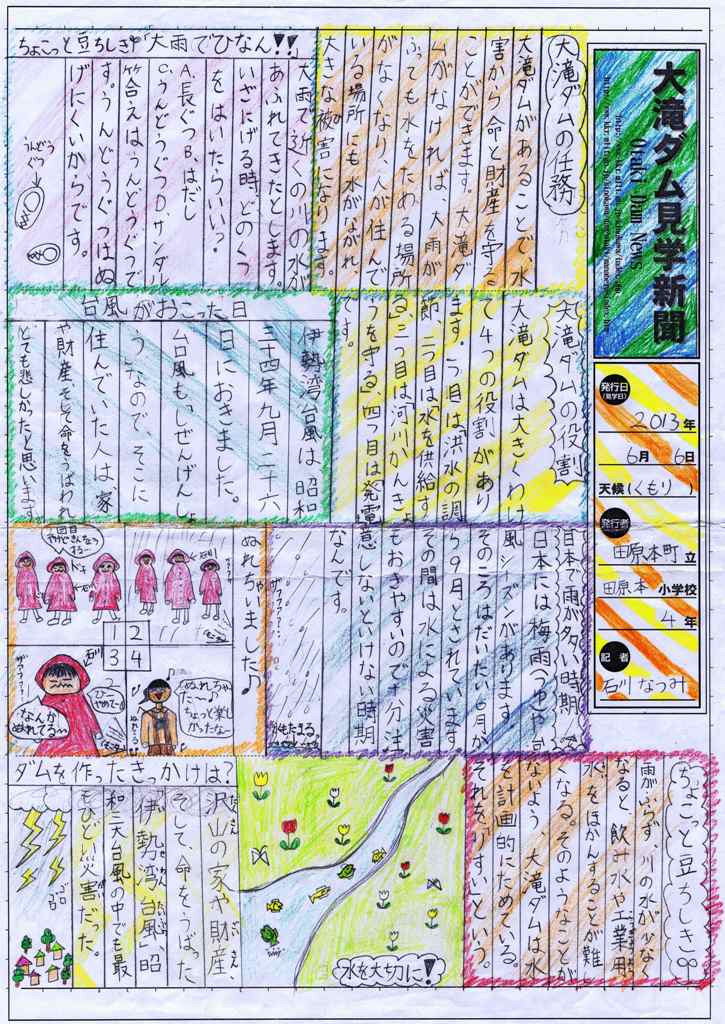 大滝ダム見学新聞
Otaki Dam News
発行日
(見学日)
2013年
6月6日
天候(くもり)
発行者
田原本町立
田原本小学校
4年
記者
石川なつみ
大滝ダムの任務
大滝ダムがあることで、水
害から命と財産を守る
ことができます。大滝ダ
ムがなければ、大雨が
ふっても水をためる場所
がなくなり、人が住んで
いる場所にも水がながれ、
大きな被害になります。
ちょこっと豆ちしき
「大雨でひなん!!」
大雨で近くの川の水が
あふれてきたとします。
いざにげる時、どのくつ
をはいたらいい?
A、長ぐつB、はだし
C、うんどうぐつD、サンダル
答えはうんどうぐつで
す。うんどうぐつはぬ
げにくいからです。
うんどう
ぐつ
大滝ダムの役割
大滝ダムは大きくわけ
て4つの役割があり
ます。一つ目は「洪水の調
節」、二つ目は「水を供給す
る」、三つ目は「河川かんきょ
うを守る」、四つ目は「発電」
です。
台風がおこった日
伊勢湾台風は昭和
三十四年九月二十六
日におきました。
台風もしぜんげんしょ
う」なので、そこに
住んでいた人は、家
や財産、そして命をうばわれ
とても悲しかったと思います。
日本で雨が多い時期
日本には梅雨(つゆ)や台
風シーズンがあります。
そのころはだいたい6月か
ら9月とされています。
その間は水による災害
もおきやすいので十分注
意しないといけない時期
なんです。
ぬれちゃいました♪
1
2
3
4
なんか
ぬれてる〜
ひ〜
やめて〜
ぬれちゃっ
た〜♪
ちょっと楽し
かったな〜
水たまる。
ちょこっと豆ちしき
雨がふらず、川の水が少なく
なると、飲み水や工業用
水をほかんすることが難し
くなる。そのようなことが
ないよう、大滝ダムは水
を計画的にためている。
それを「りすい」という。
水を大切に!
ダムを作ったきっかけは?
沢山の家や財産、
そして、命をうばった
「伊勢湾台風」、昭
和三大台風の中でも最
もひどい災害だった。
ゴロ
ゴロ